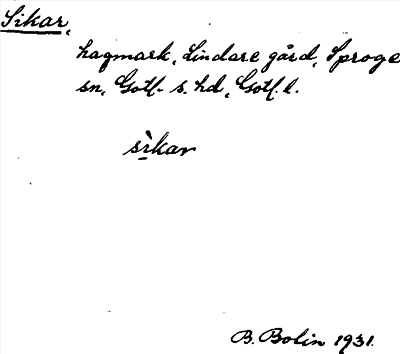 Sikar,
hagmark, Lindare gård, Sproge
sn, Gotl. s. hd, Gotl. l.
sìkar
B. Bolin 1931.